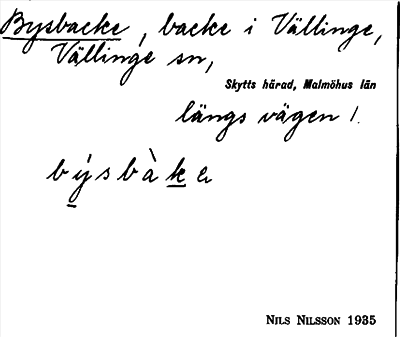 Bysbacke, backe i Vällinge,
Vällinge sn,
Skytts härad, Malmöhus län
längs vägen /.
býsbàke
NILS NILSSON 1935